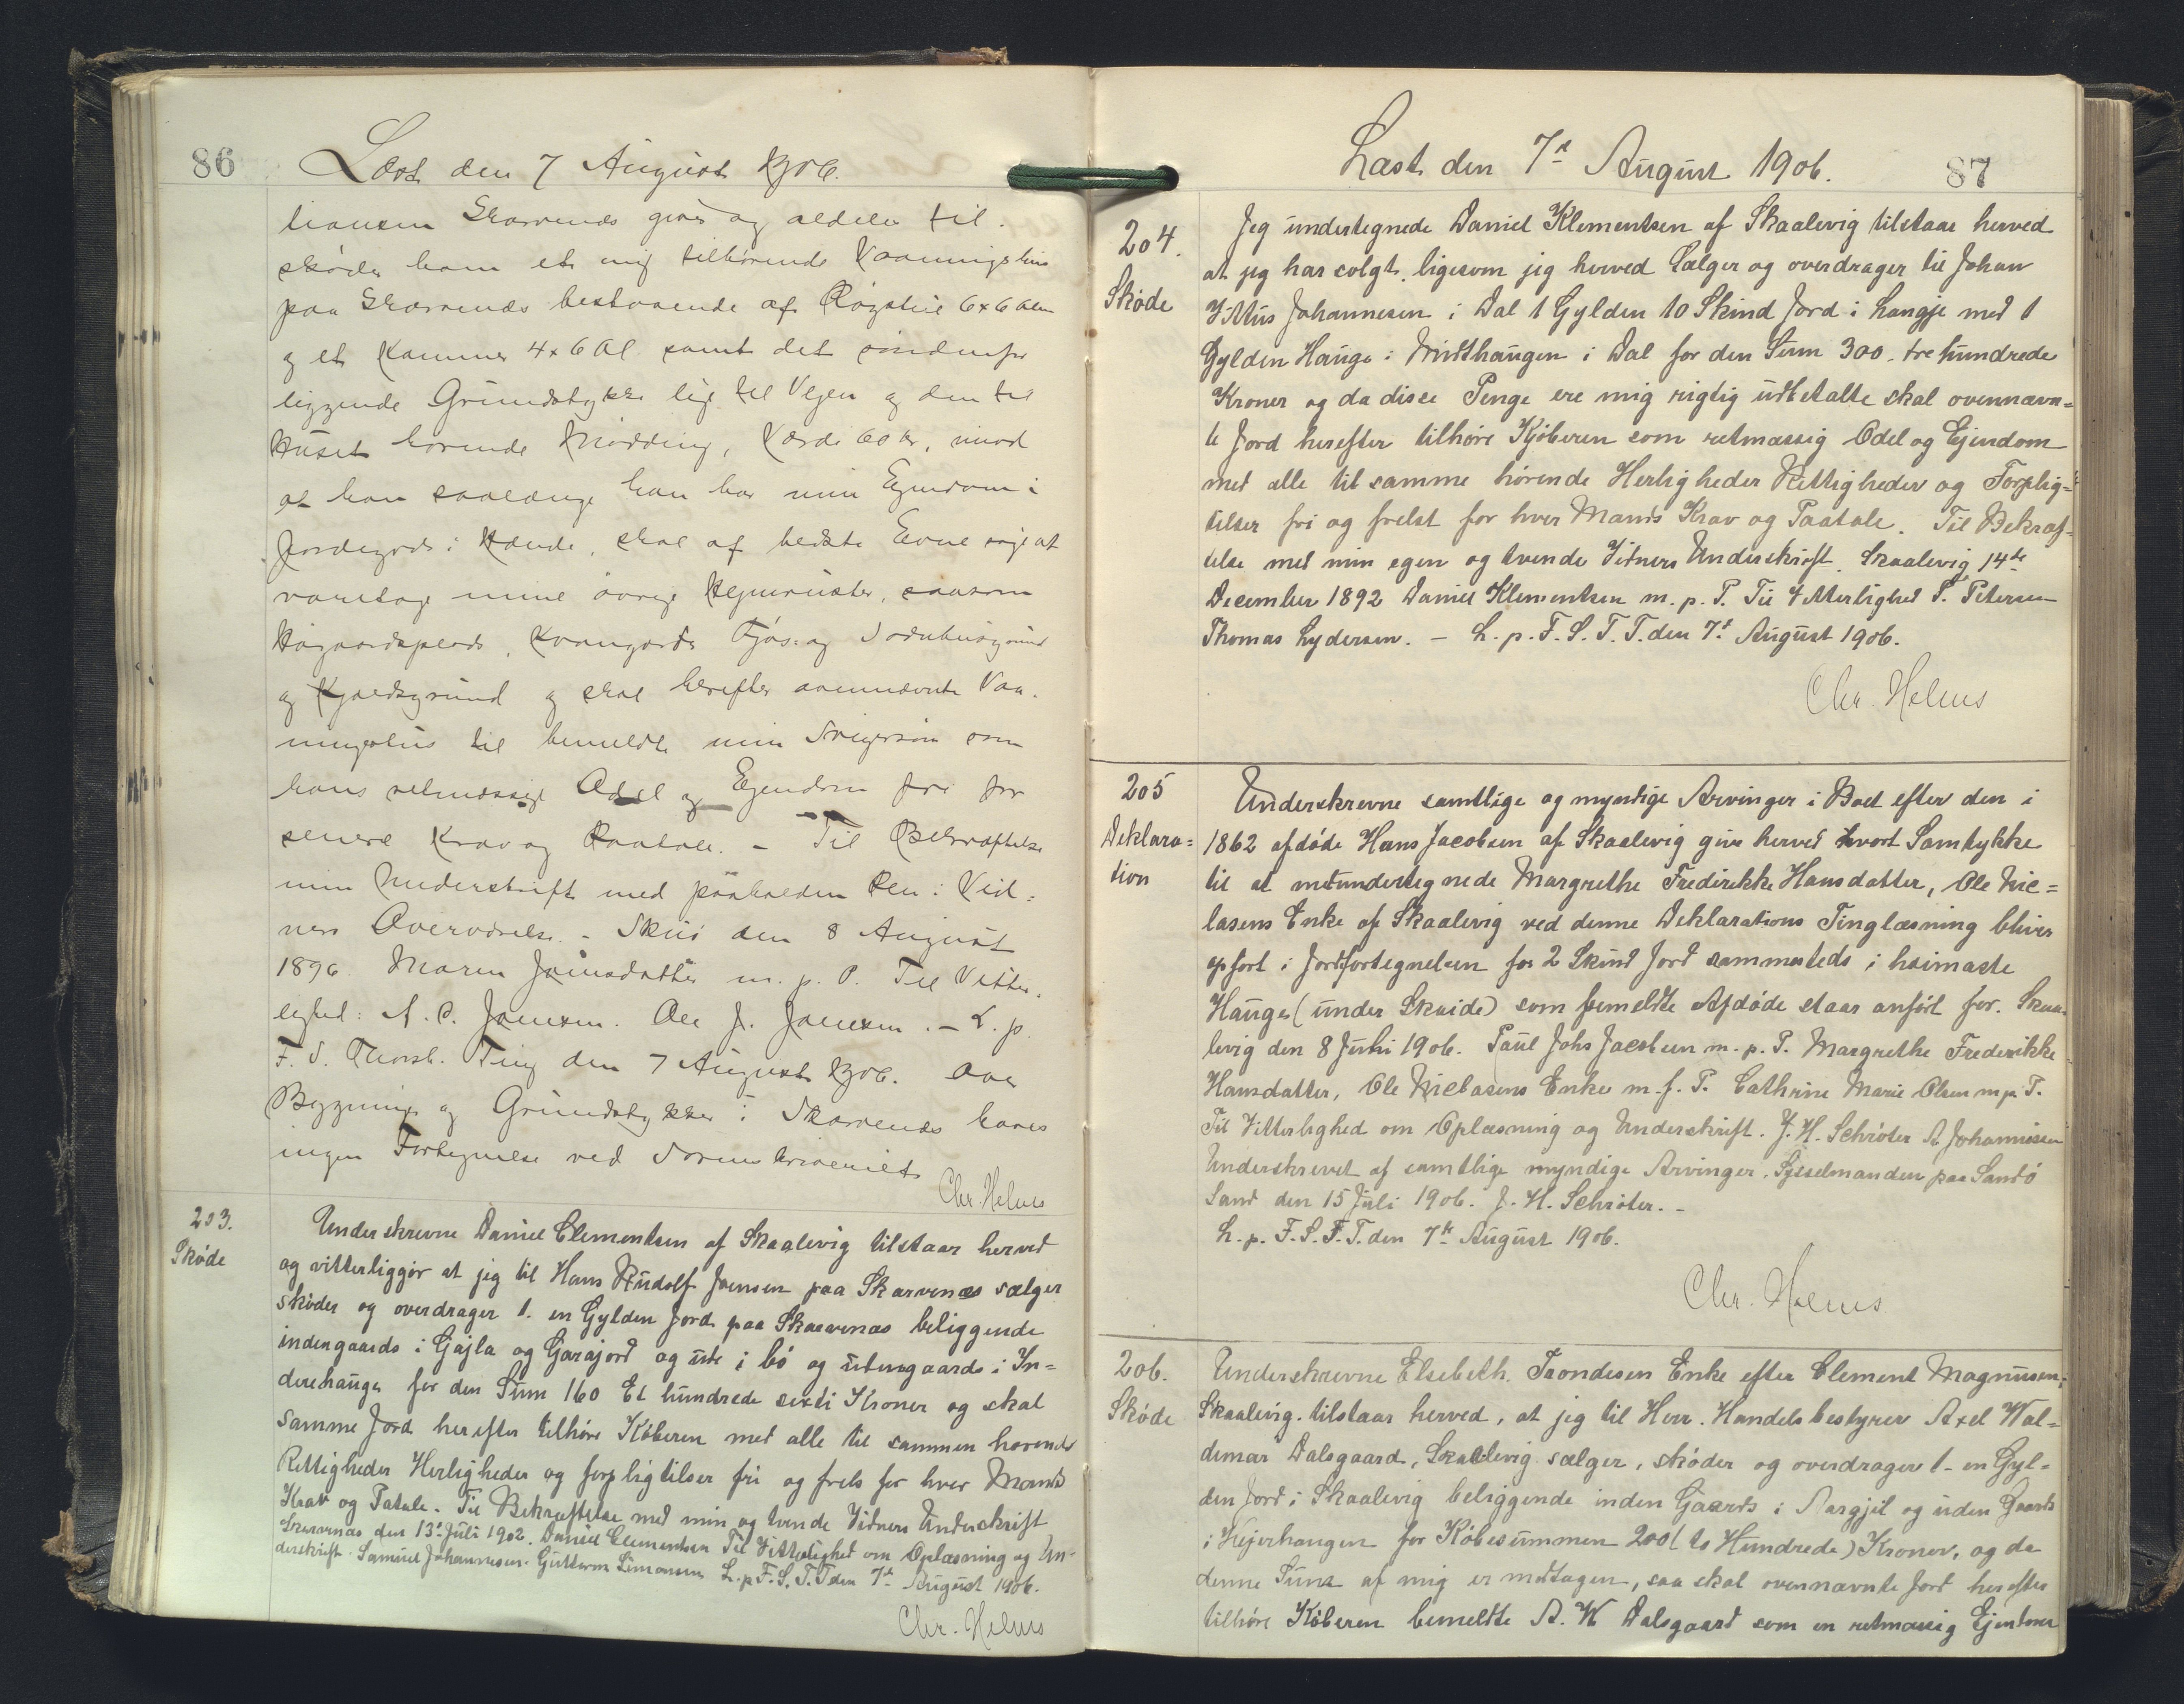 86
Læst den 7 August 1906.
liansen Skarvenes giver og aldeles til-
skøder ham et mig tilhørende Vaaningshus
paa Skarvenæs bestaaende af Røgstue 6x6 Alen
og et Kammer 4x6 Al samt det søndenfor
liggende Grundstykke lige til Vejen og den til
Huset hørende Mødding, Værdi 60 Kr, imod
at han saalænge han har min Ejendom i
Jordegods i Hænde, skal af bedste Evne søge at
varetage mine øvrige
og skal herefter ovennævnte Vaa-
ningshus til bemeldte min Svigersøn som
hans retmæssige Odel og Ejendom fri for
senere Krav og Paatale. - Til Bekræftelse
min Underskrift med paaholden Pen i Vid-
ners Overværelse. - Skuø den 8 August
1896. Maren Joensdatter m. p. P. Til Vitter-
lighed: J. Joensen. Ole J. Joensen. - L. p.
F. S. Thorsh. Ting den 7 August 1906. Over
Bygninger og Grundstykker i Skarvenes haves
ingen Fortegnelse ved Sorenskriveriet
Chr. Helms
203.
Skøde
Underskrevne Daniel Clementsen af Skaalevig tilstaar herved
og vitterliggør at jeg til Hans Rudolf Joensen paa Skarvenæs sælger
skøder og overdrager 1. en Gylden Jord paa Skaarvenæs beliggende
indengaards i Gajla og Garajord og ute i bø og utengaards i In-
derehauge for den Sum 160 Et hundrede sexti Kroner og skal
samme Jord herefter tilhøre Køberen med alle til sammen hørende
Rettigheder Herligheder og forpligtilser fri og frels for hver Mands
Krav og Patale. Til Bekræftelse med min og tvende Vidners Underskrift
Skarvenæs den 13de Juli 1902. Daniel Clementsen Til Vitterlighed om Oplæsning og Un-
derskrift. Samuel Johannesen. Guttorm Simonsen L. p. F. S. T. T. den 7de August 1906.
Chr. Helms
Læst den 7de August 1906.
87
204.
Skøde
Jeg undertegnede Daniel Klementsen af Skaalevig tilstaar herved
at jeg har solgt, ligesom jeg herved Sælger og overdrager til Johan
Vittus Johannesen i Dal 1 Gylden 10 Skind Jord i Langje med 1
Gylden Hauge i Midthaugen i Dal for den Sum 300. tre hundrede
Kroner og da disse Penge ere mig rigtig udbetalte skal ovennævn=
te Jord herefter tilhøre Kjøberen som retmæssig Odel og Ejendom
met alle til samme hørende Herligheder Rettigheder og Forplig=
tilser fri og frelst for hver Mands Krav og Paatale. Til Bekræf-
telse met min egen og tvende Vidners Underskrift. Skaalevig 14de
December 1892 Daniel Klementsen m. p. P. Til Vitterlighed P. Petersen
Thomas Lydersen. - L. p. F. S. T. T. den 7de August 1906.
Chr. Helms
205
Deklara=
tion
Underskrevne samtlige og myndige Arvinger i Boet efter den i
1862 afdøde Hans Jacobsen af Skaalevig give herved vort Samtykke
til at medundertegnede Margrethe Fredirikke Hansdatter, Ole Nic=
lasens Enke af Skaalevig ved denne Deklarations Tinglæsning bliver
opført i Jordfortegnelsen for 2 Skind Jord sammesteds i heimaste
Hauge (under Skeide) som bemeldte Afdøde staar anført for. Skaa-
levig den 8 Juni 1906. Paul Johs Jacobsen m. p. P. Margrethe Frederikke
Hansdatter, Ole Niclasens Enke m. f. P. Cathrine Marie Olsen m p. P.
Til Vitterlighed om Oplæsning og Underskrift. J. H. Schrøter A Johannesen
Underskrevet af samtlige myndige Arvinger. Sysselmanden paa Sandø
Sand den 15 Juli 1906. J. H. Schrøter. -
L. p. F. S. T. T. den 7de August 1906.
Chr. Helms
206.
Skøde
Underskrevne Elsebeth Trondesen Enke efter Clement Magnusen,
Skaalevig. tilstaar herved, at jeg til Herr. Handelsbestyrer Axel Wal=
demar Dalsgaard, Skaalevig sælger, skøder og overdrager 1 - en Gyl=
den Jord i Skaalevig beliggende inden Gaards i Aargjil og uden Gaards
i Hejerhaugen for Købesummen 200 (to Hundrede) Kroner, og da
denne Sum af mig er modtagen, saa skal ovennævnte Jord herefter
tilhøre Køberen bemeldte A. W Dalsgaard som en retmæssig Ejendom